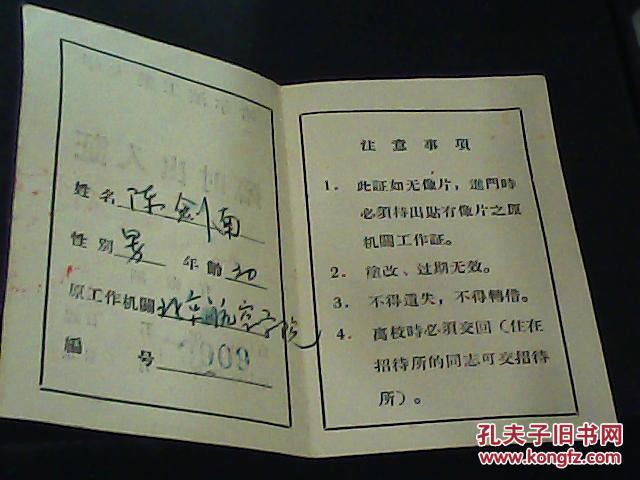 姓名 陈剑南
性别 男 年齡 20
原工作机關 北京航空学院
編 号
注意事項
1. 此証如无像片，進門時
必須持出貼有像片之原
机關工作証。
2. 塗改、过期无效。
3. 不得遺失，不得轉借。
4. 离校時必須交回（住在
招待所的同志可交招待
所）。
孔夫子旧书网
www.kongfz.com